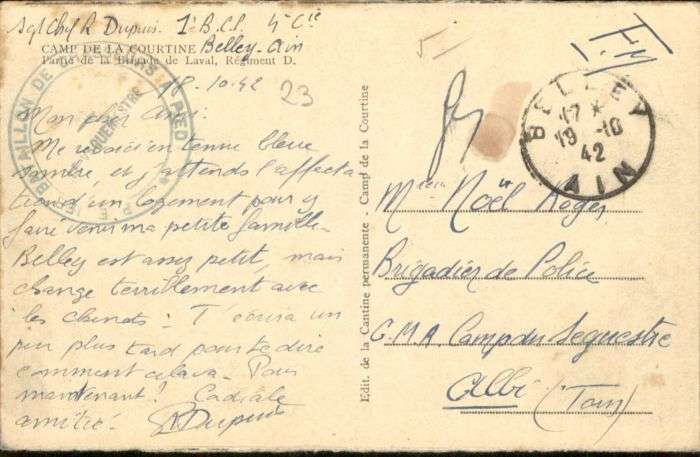 Sgt Chef R Dupuis. 1e B.C.P. 4e Cie
CAMP DE LA COURTINE Belley-Ain
Partie de la Brigade de Laval, Régiment D.
18.10.42
23
Mon cher ami:
Me voici en tenue bleue
sombre et j'attends l'affecta
tion d'un logement pour y
faire venir ma petite famille.
Belley est assez petit, mais
change terriblement avec
les : T
peu plus tard pour te dire
comment cela va. Pour
maintenant! Cordiale
amitié.
RDupuis
BATAILLON DE CHASSEURS A PIED
Edit. de la Cantine permanente. Camp de la Courtine
F.M
BELLEY
17 *
19 -10
42
AIN
Noël Roger
Brigadier de Police
G.M.R. Camp du Sequestre
Albi (Tarn)